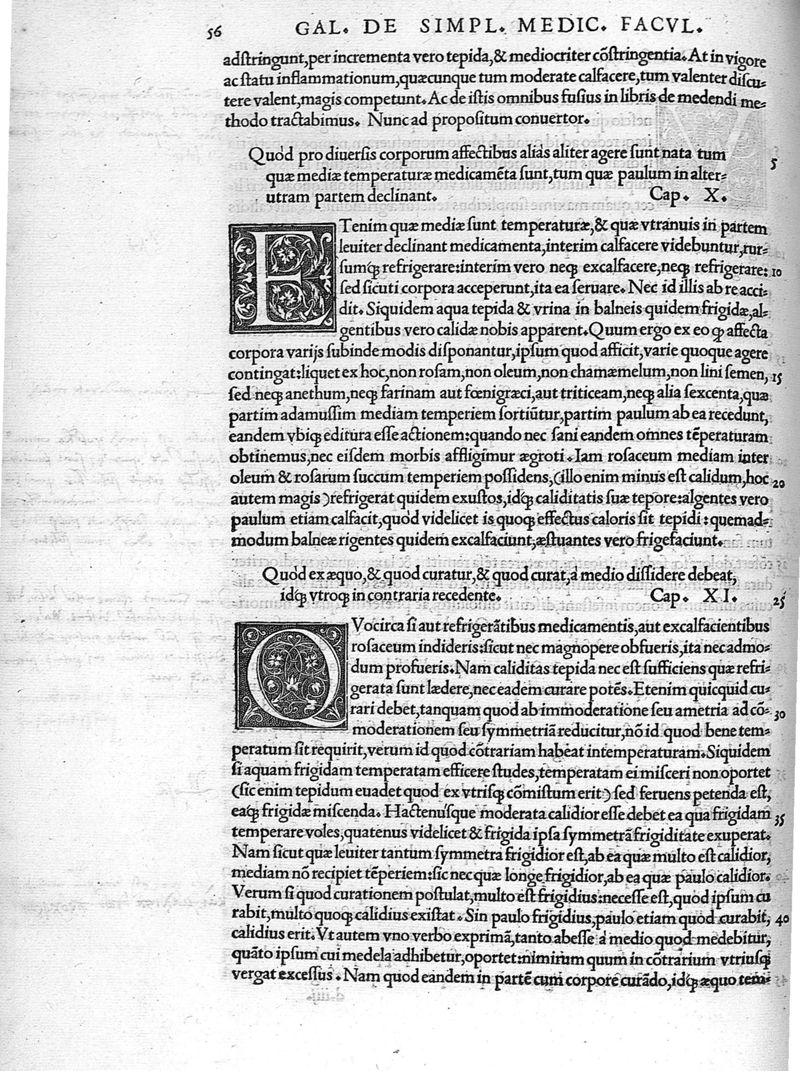 56 GAL. DE SIMPL. MEDIC. FACVL.
adstringunt, per incrementa vero tepida, & mediocriter cõstringentia. At in vigore
ac statu inflammationum, quæcunque tum moderate calfacere, tum valenter discu-
tere valent, magis competunt. Ac de istis omnibus fusius in libris de medendi me-
thodo tractabimus. Nunc ad propositum conuertor.
Quòd pro diuersis corporum affectibus aliàs aliter agere sunt nata tum 5
quæ mediæ temperaturæ medicamẽta sunt, tum quæ paulum in alter-
utram partem declinant. Cap. X.
ETenim quæ mediæ sunt temperaturæ, & quæ vtranuis in partem
leuiter declinant medicamenta, interim calfacere videbuntur, rur-
sumq́; refrigerare: interim vero neq; excalfacere, neq; refrigerare: 10
sed sicuti corpora acceperunt, ita ea seruare. Nec id illis ab re acci-
dit. Siquidem aqua tepida & vrina in balneis quidem frigidæ, al-
gentibus vero calidæ nobis apparent. Quum ergo ex eo q̃ affecta
corpora varijs subinde modis disponantur, ipsum quod afficit, varie quoque agere
contingat: liquet ex hoc, non rosam, non oleum, non chamæmelum, non lini semen, 15
sed neq; anethum, neq; farinam aut fœnigræci, aut triticeam, neq; alia sexcenta, quæ
partim adamussim mediam temperiem sortiũtur, partim paulum ab ea recedunt,
eandem vbiq; editura esse actionem: quando nec sani eandem omnes tẽperaturam
obtinemus, nec eisdem morbis affligimur ægroti. Iam rosaceum mediam inter
oleum & rosarum succum temperiem possidens, (illo enim minus est calidum, hoc 20
autem magis) refrigerat quidem exustos, idq́; caliditatis suæ tepore: algentes vero
paulum etiam calfacit, quòd videlicet is quoq; effectus caloris sit tepidi: quemad-
modum balneæ rigentes quidem excalfaciunt, æstuantes vero frigefaciunt.
Quòd ex æquo, & quod curatur, & quod curat, à medio dissidere debeat,
idq́; vtroq; in contraria recedente. Cap. XI. 25
QVocirca si aut refrigerãtibus medicamentis, aut excalfacientibus
rosaceum indideris: sicut nec magnopere obfueris, ita nec admo-
dum profueris. Nam caliditas tepida nec est sufficiens quæ refri-
gerata sunt lædere, nec eadem curare potẽs. Etenim quicquid cu-
rari debet, tanquam quod ab immoderatione seu ametria ad cõ- 30
moderationem seu symmetriã reducitur, nõ id quod bene tem-
peratum sit requirit, verum id quod cõtrariam habeat intemperaturam. Siquidem
si aquam frigidam temperatam efficere studes, temperatam ei misceri non oportet
(sic enim tepidum euadet quod ex vtrisq; cõmistum erit) sed feruens petenda est,
eaq́; frigidæ miscenda. Hactenusque moderata calidior esse debet ea qua frigidam 35
temperare voles, quatenus videlicet & frigida ipsa symmetrã frigiditate exuperat.
Nam sicut quæ leuiter tantum symmetra frigidior est, ab ea quæ multo est calidior,
mediam nõ recipiet tẽperiem: sic nec quæ longe frigidior, ab ea quæ paulo calidior.
Verum si quod curationem postulat, multo est frigidius: necesse est, quod ipsum cu
rabit, multo quoq; calidius existat. Sin paulo frigidius, paulo etiam quod curabit, 40
calidius erit. Vt autem vno verbo exprimã, tanto abesse à medio quod medebitur,
quãto ipsum cui medela adhibetur, oportet: nimirum quum in cõtrarium vtriusq;
vergat excessus. Nam quod eandem in partẽ cum corpore curãdo, idq́; æquo tem-